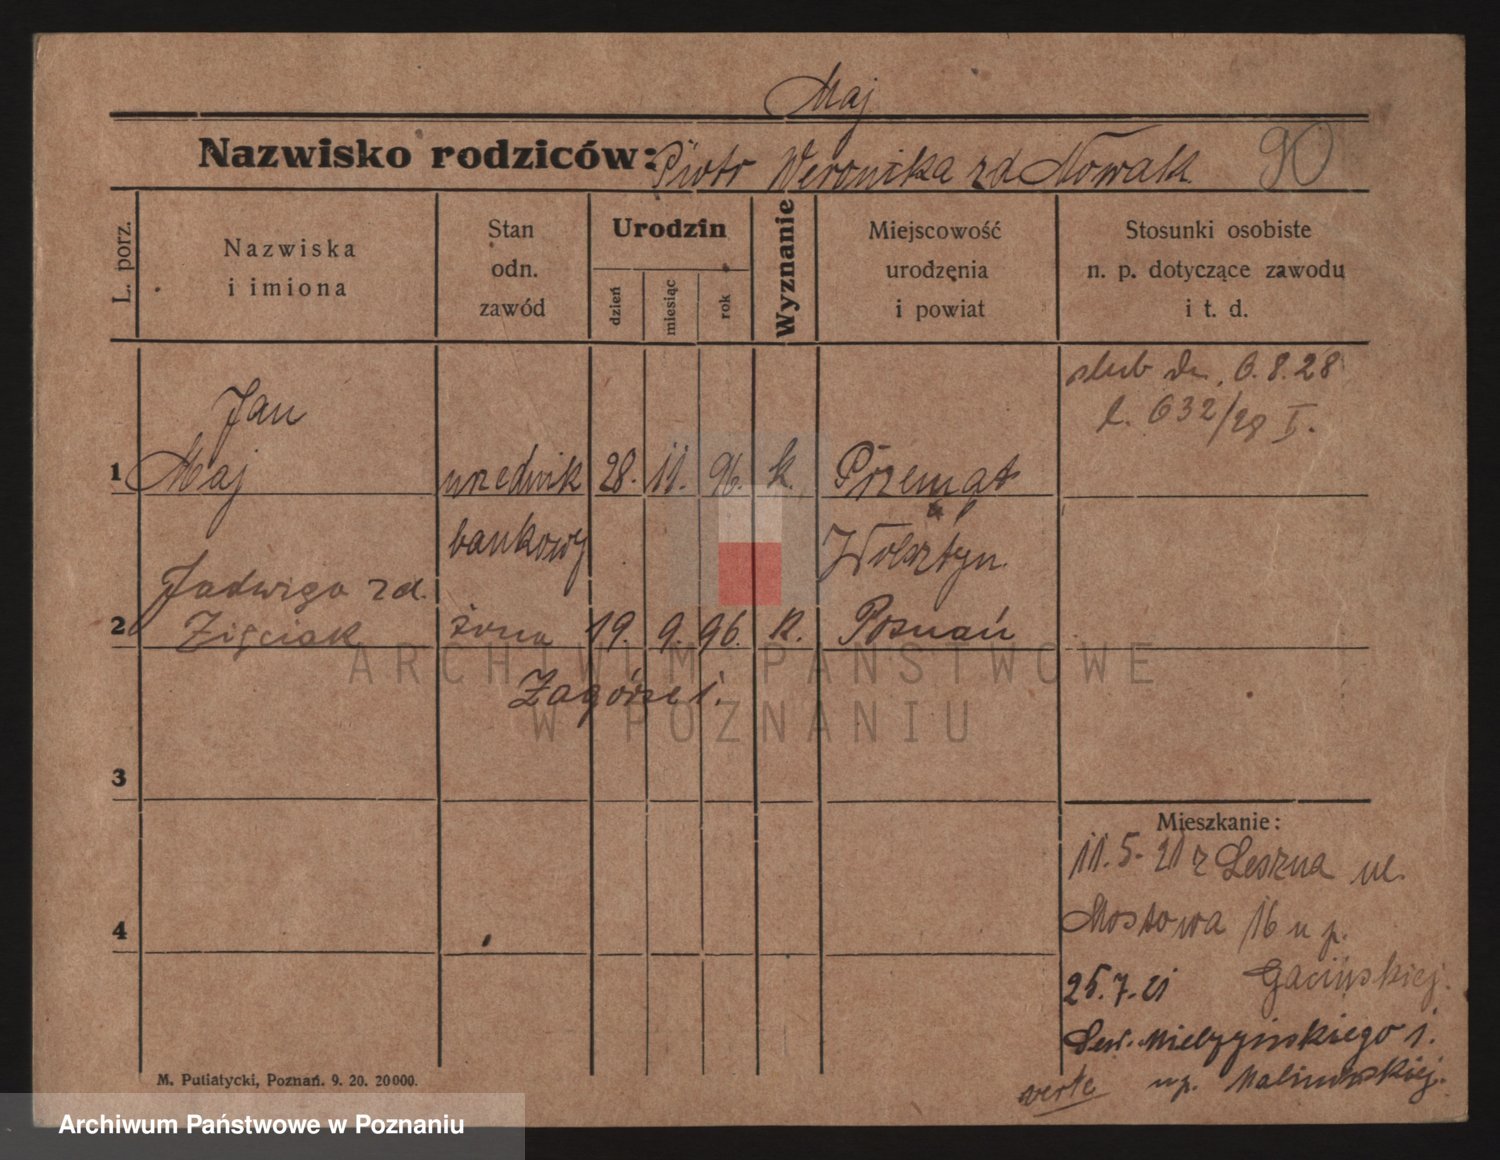 Maj
Nazwisko rodziców: Piotr Weronika zd Nowak 90
L. porz.
Nazwiska i imiona
Stan odn. zawód
Urodzin
dzień
miesiąc
rok
Wyznanie
Miejscowość urodzenia i powiat
Stosunki osobiste n. p. dotyczące zawodu i t. d.
ślub dn. 6.8.28
l. 632/28 I.
Jan
1 Maj urzednik 28. 11. 96. k. Przemąt
bankowy Wolsztyn
Jadwiga zd.
2 Zięciak żona 19. 9. 96. k. Poznań
Zagórze 1.
3
4
Mieszkanie:
11.5-21 z Leszna ul.
Mostowa 16 u p.
Gacińskiej.
25.7.21
Sew. Mielżyńskiego 1.
up. Malinowskiej.
verte
M. Putiatycki, Poznań. 9. 20. 20000.
ARCHIWUM PAŃSTWOWE
W POZNANIU
Archiwum Państwowe w Poznaniu